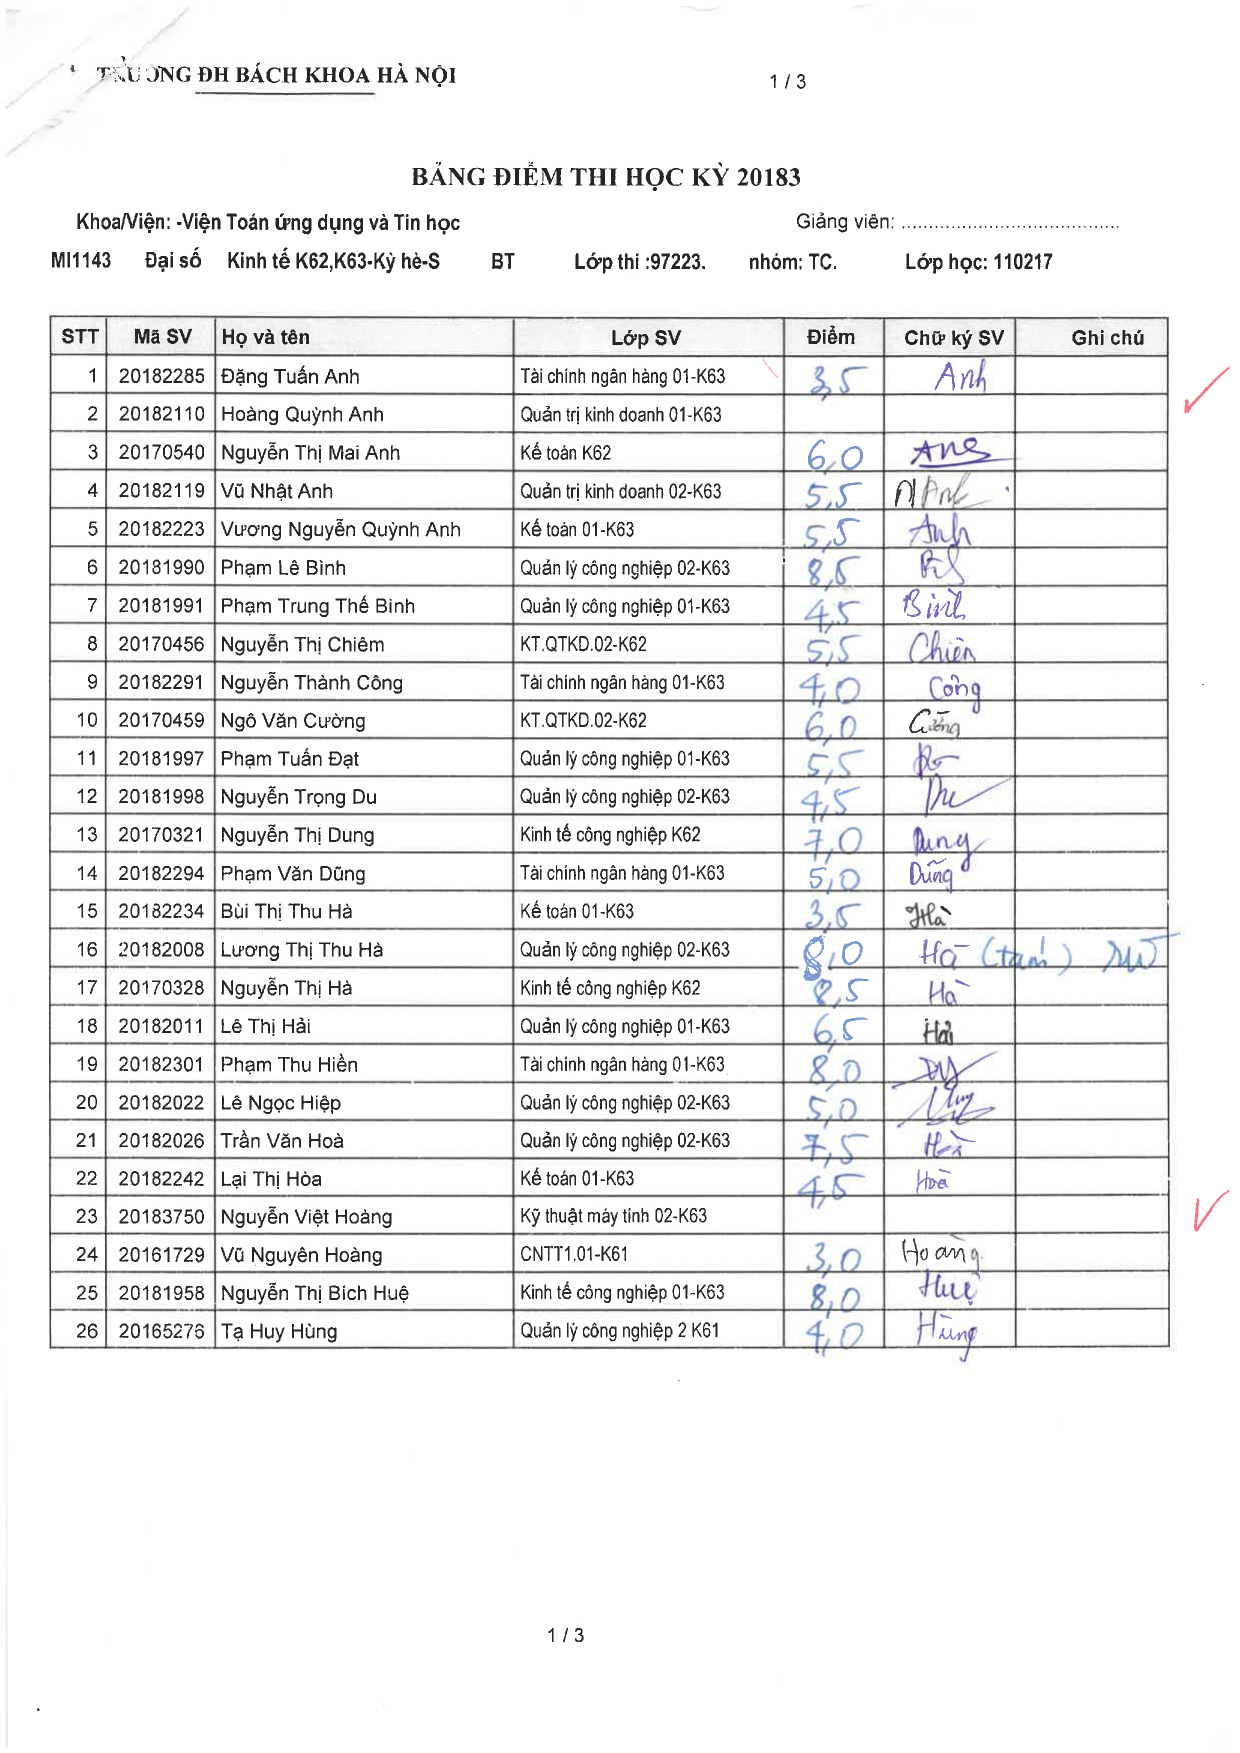 TRƯỜNG ĐH BÁCH KHOA HÀ NỘI
1 / 3
BẢNG ĐIỂM THI HỌC KỲ 20183
Khoa/Viện: -Viện Toán ứng dụng và Tin học Giảng viên: ........................................
MI1143 Đại số Kinh tế K62,K63-Kỳ hè-S BT Lớp thi :97223. nhóm: TC. Lớp học: 110217
STT Mã SV Họ và tên Lớp SV Điểm Chữ ký SV Ghi chú
1 20182285 Đặng Tuấn Anh Tài chính ngân hàng 01-K63 3,5 Anh
2 20182110 Hoàng Quỳnh Anh Quản trị kinh doanh 01-K63
3 20170540 Nguyễn Thị Mai Anh Kế toán K62 6,0
4 20182119 Vũ Nhật Anh Quản trị kinh doanh 02-K63 5,5
5 20182223 Vương Nguyễn Quỳnh Anh Kế toán 01-K63 5,5 Anh
6 20181990 Phạm Lê Bình Quản lý công nghiệp 02-K63 8,5
7 20181991 Phạm Trung Thế Bình Quản lý công nghiệp 01-K63 4,5 Bình
8 20170456 Nguyễn Thị Chiêm KT.QTKD.02-K62 5,5
9 20182291 Nguyễn Thành Công Tài chính ngân hàng 01-K63 4,0 Công
10 20170459 Ngô Văn Cường KT.QTKD.02-K62 6,0 Cường
11 20181997 Phạm Tuấn Đạt Quản lý công nghiệp 01-K63 5,5
12 20181998 Nguyễn Trọng Du Quản lý công nghiệp 02-K63 4,5 Du
13 20170321 Nguyễn Thị Dung Kinh tế công nghiệp K62 7,0 Dung
14 20182294 Phạm Văn Dũng Tài chính ngân hàng 01-K63 5,0 Dũng
15 20182234 Bùi Thị Thu Hà Kế toán 01-K63 3,5 Hà
16 20182008 Lương Thị Thu Hà Quản lý công nghiệp 02-K63 8,0 Hà (tám)
17 20170328 Nguyễn Thị Hà Kinh tế công nghiệp K62 8,5 Hà
18 20182011 Lê Thị Hải Quản lý công nghiệp 01-K63 6,5 Hải
19 20182301 Phạm Thu Hiền Tài chính ngân hàng 01-K63 8,0
20 20182022 Lê Ngọc Hiệp Quản lý công nghiệp 02-K63 5,0
21 20182026 Trần Văn Hoà Quản lý công nghiệp 02-K63 7,5
22 20182242 Lại Thị Hòa Kế toán 01-K63 4,5 Hoà
23 20183750 Nguyễn Việt Hoàng Kỹ thuật máy tính 02-K63
24 20161729 Vũ Nguyên Hoàng CNTT1.01-K61 3,0 Hoàng
25 20181958 Nguyễn Thị Bích Huệ Kinh tế công nghiệp 01-K63 8,0 Huệ
26 20165276 Tạ Huy Hùng Quản lý công nghiệp 2 K61 4,0 Hùng
1 / 3